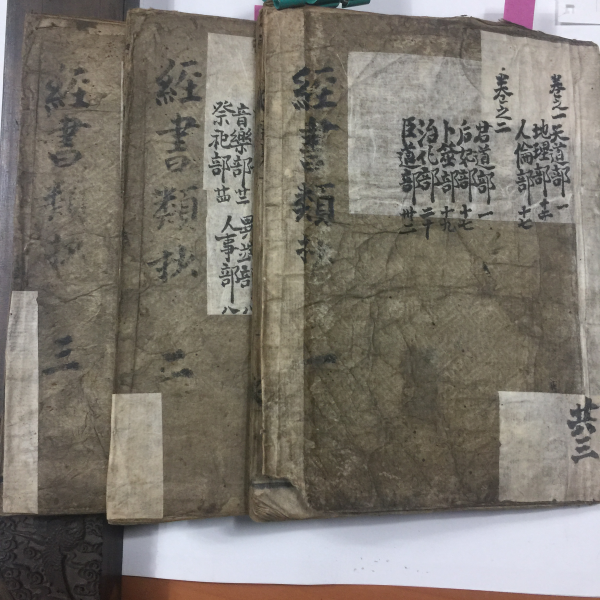 經書類抄 一
卷之一 天道部 一
地理部
人倫部 十七
卷之二
君道部 一
后妃部 十七
卜筮部 十九
治化部 二十
臣道部 卅二
共三
經書類抄 二
音樂部
祭祀部
人事部
經書類抄 三